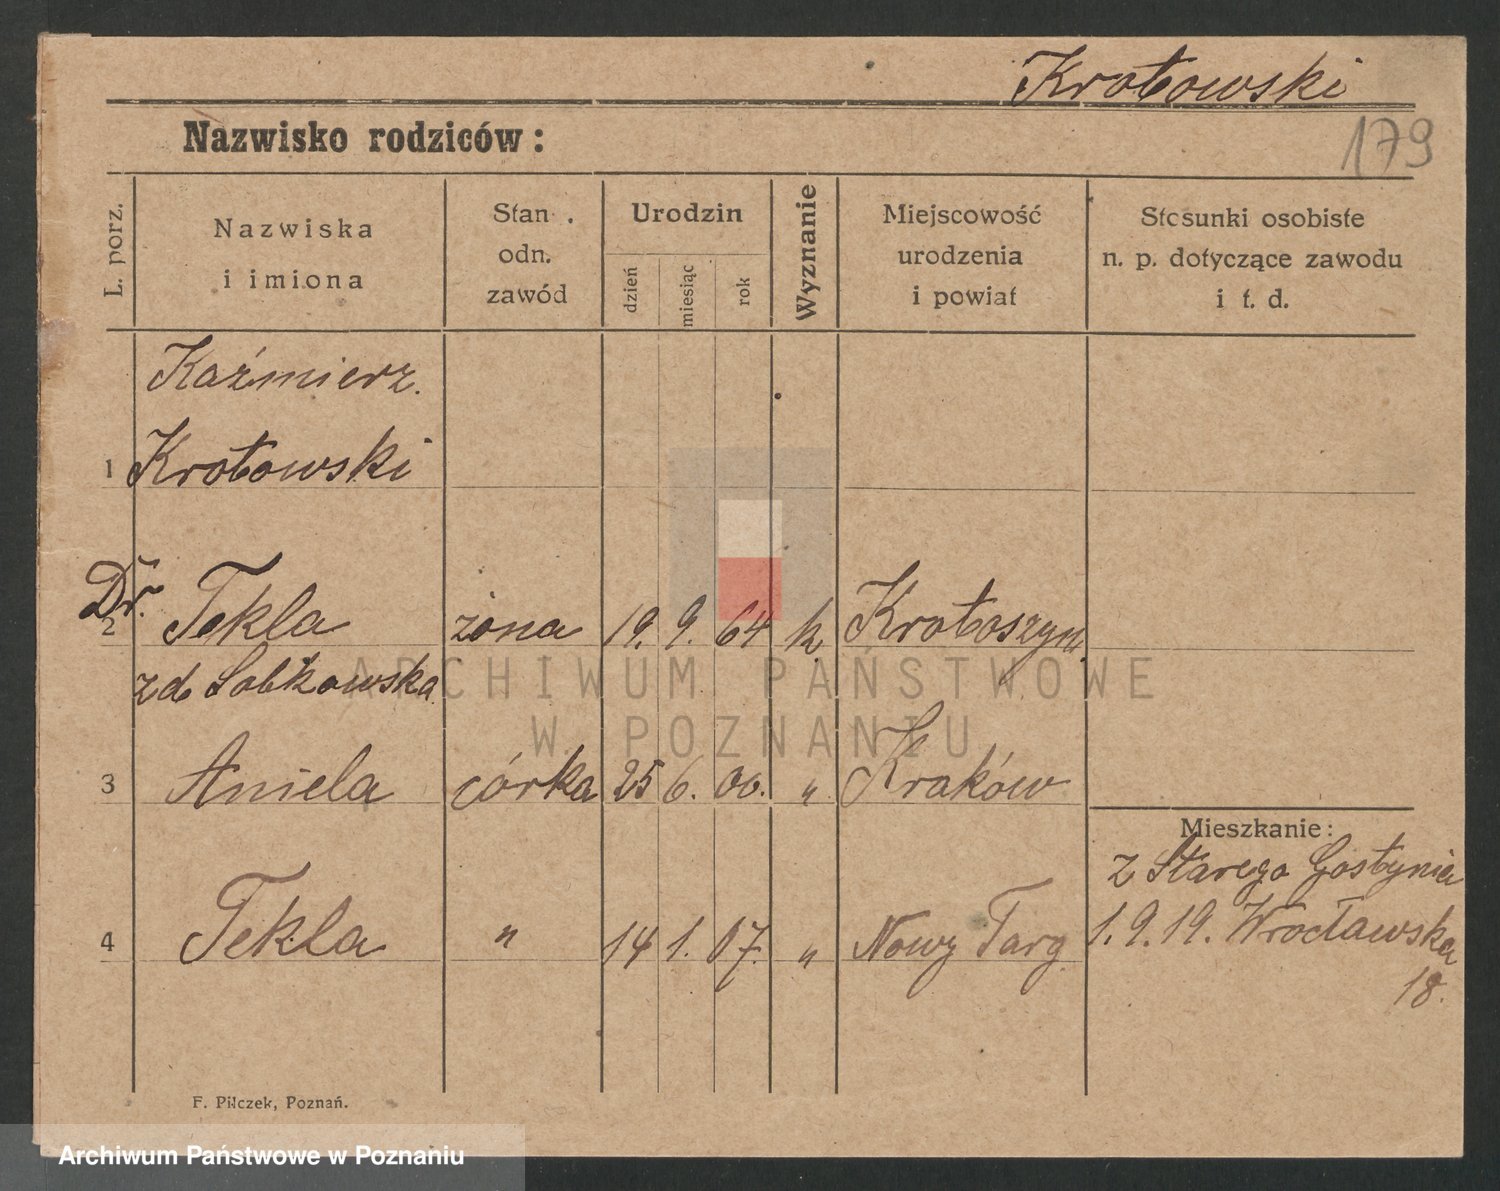 Krotowski
179
Nazwisko rodziców:
L. porz.
Nazwiska
i imiona
Stan
odn.
zawód
Urodzin
dzień
miesiąc
rok
Wyznanie
Miejscowość
urodzenia
i powiat
Stosunki osobiste
n. p. dotyczące zawodu
i t. d.
Kaźmierz.
1 Krotowski
Dr.
2 Tekla żona 19. 9. 64 k. Krotoszyn.
zd Sobkowska
3 Aniela córka 25 6. 00. " Kraków
Mieszkanie:
z Starego Gostynia
4 Tekla " 14 1. 07. " Nowy Targ
1.9.19. Wrocławska
18.
F. Pilczek, Poznań.
ARCHIWUM PAŃSTWOWE
W POZNANIU
Archiwum Państwowe w Poznaniu